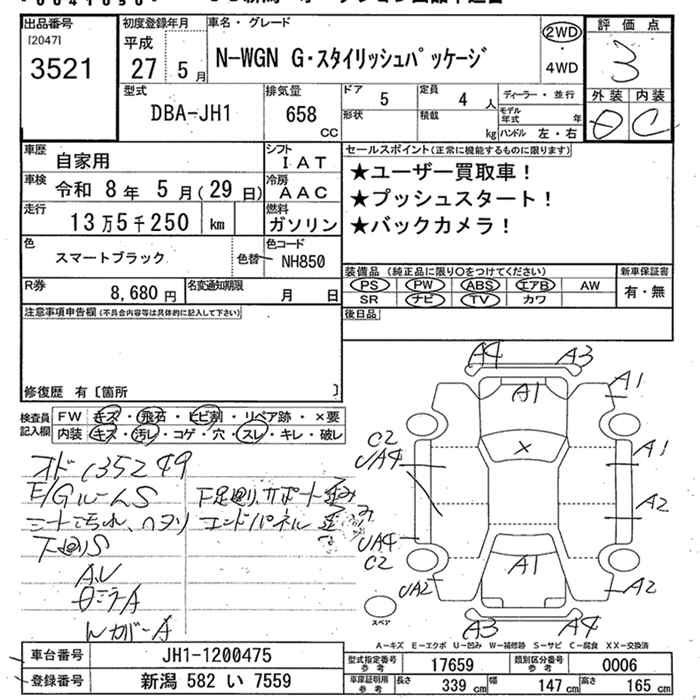 出品番号
[2047]
3521
初度登録年月
平成
27 5月
車名・グレード
N-WGN G・スタイリッシュパッケージ
2WD
・
4WD
評価点
3
外装 内装
C
型式
DBA-JH1
排気量
658
CC
ドア 5
定員 4人
形状
積載 kg
ディーラー・並行
モデル年式 年
ハンドル 左・右
車歴
自家用
シフト
IAT
車検 令和 8年 5月(29日)
冷房
AAC
走行 13万5千250 km
燃料
ガソリン
色
スマートブラック
色替
色コード
NH850
R券
8,680円
名変通知期限
月 日
セールスポイント(正常に機能するものに限ります)
★ユーザー買取車!
★プッシュスタート!
★バックカメラ!
装備品(純正品に限り○をつけてください)
PS PW ABS エアB AW
SR ナビ TV カワ
新車保証書
有・無
後日品
注意事項申告欄(不具合内容等は具体的に記入して下さい)
修復歴 有〔箇所 〕
検査員記入欄
FW キズ・飛石・ヒビ割・リペア跡・×要
内装 キズ・汚れ・コゲ・穴・スレ・キレ・破レ
オド135249
E/GルームS
下廻りサポート
エンドパネル
下廻りS
A4 A3
A1 A1
C2
UA4
A1
X
A2
UA4
C2
UA2
A1
A2
A3 A4
スペア
A-キズ E-エクボ U-凹み W-補修跡 S-サビ C-腐食 XX-交換済
車台番号 JH1-1200475
登録番号 新潟 582 い 7559
型式指定番号 参考 17659
類別区分番号 参考 0006
車庫証明用 参考 長さ 339cm 幅 147cm 高さ 165cm